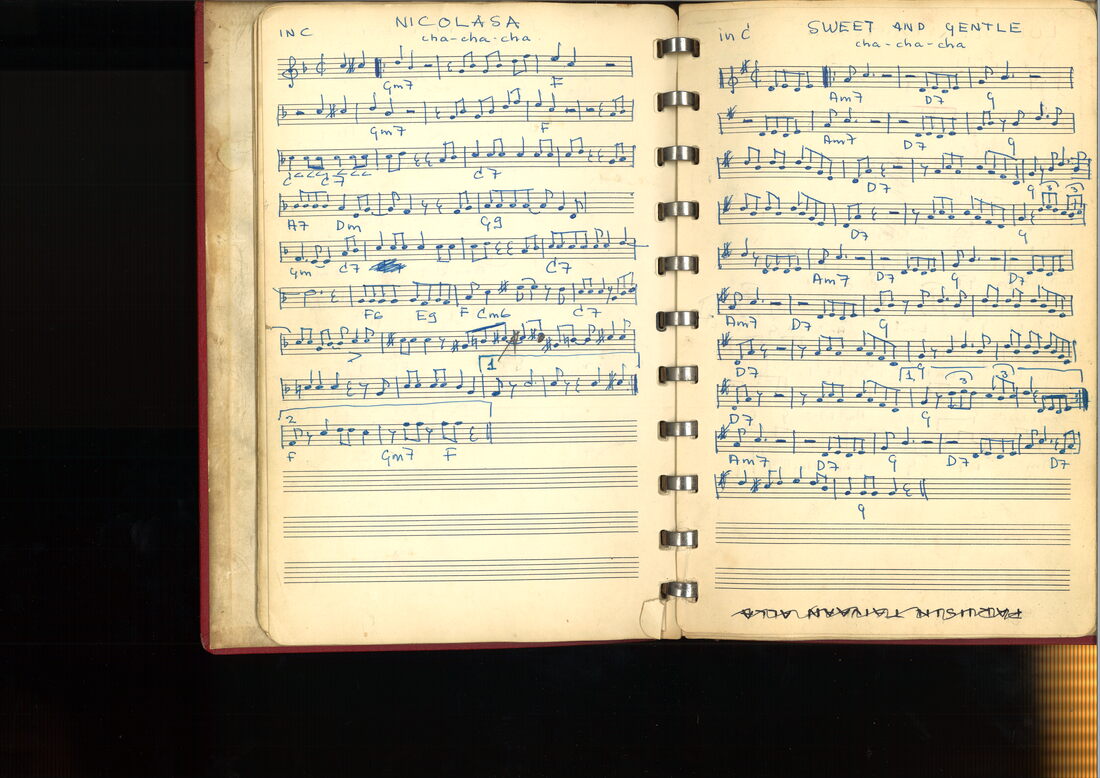 IN C
NICOLASA
cha-cha-cha
Gm7 F
Gm7 F
C C7 C7
A7 Dm G9
Gm C7 C7
F6 E9 F Cm6 C7
1
2
F Gm7 F
in C
SWEET AND GENTLE
cha-cha-cha
Am7 D7 G
Am7 D7 G
D7 G
3 3
D7 G
Am7 D7 G D7
Am7 D7 G
D7 1 G
3 3
D7 G
Am7 D7 G D7 D7
G